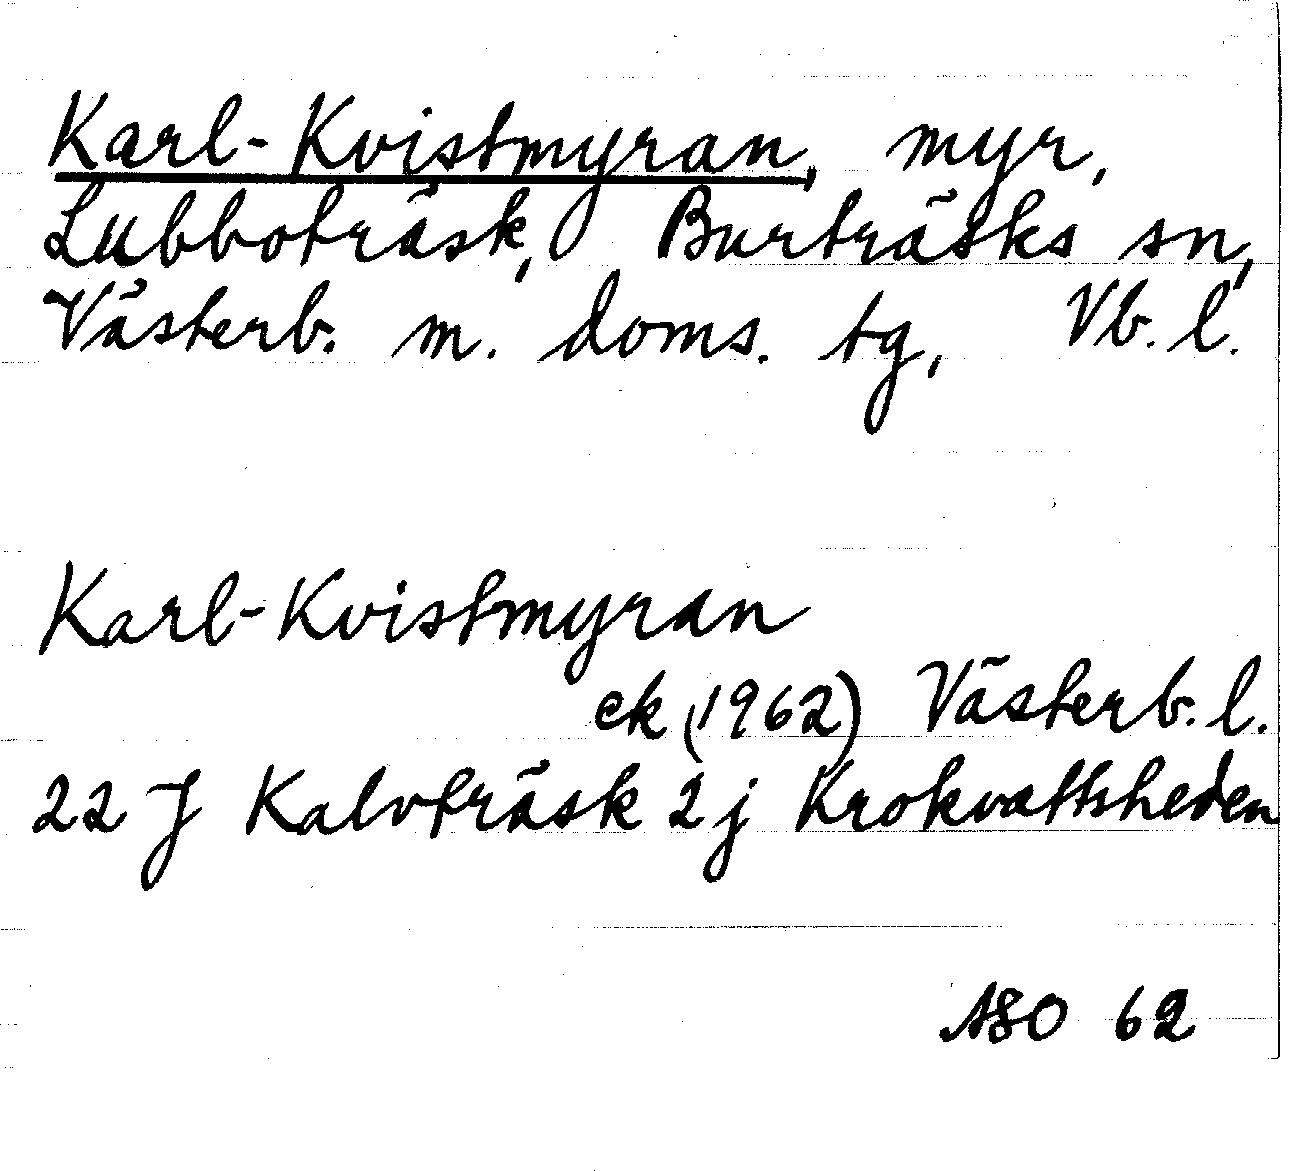 Karl-Kvistmyran, myr,
Lubboträsk, Burträsks sn,
Västerb. m. doms. tg, Vb. l.
Karl-Kvistmyran
ek (1962) Västerb. l.
22 J Kalvträsk 2 j Krokvattsheden
ASO 62